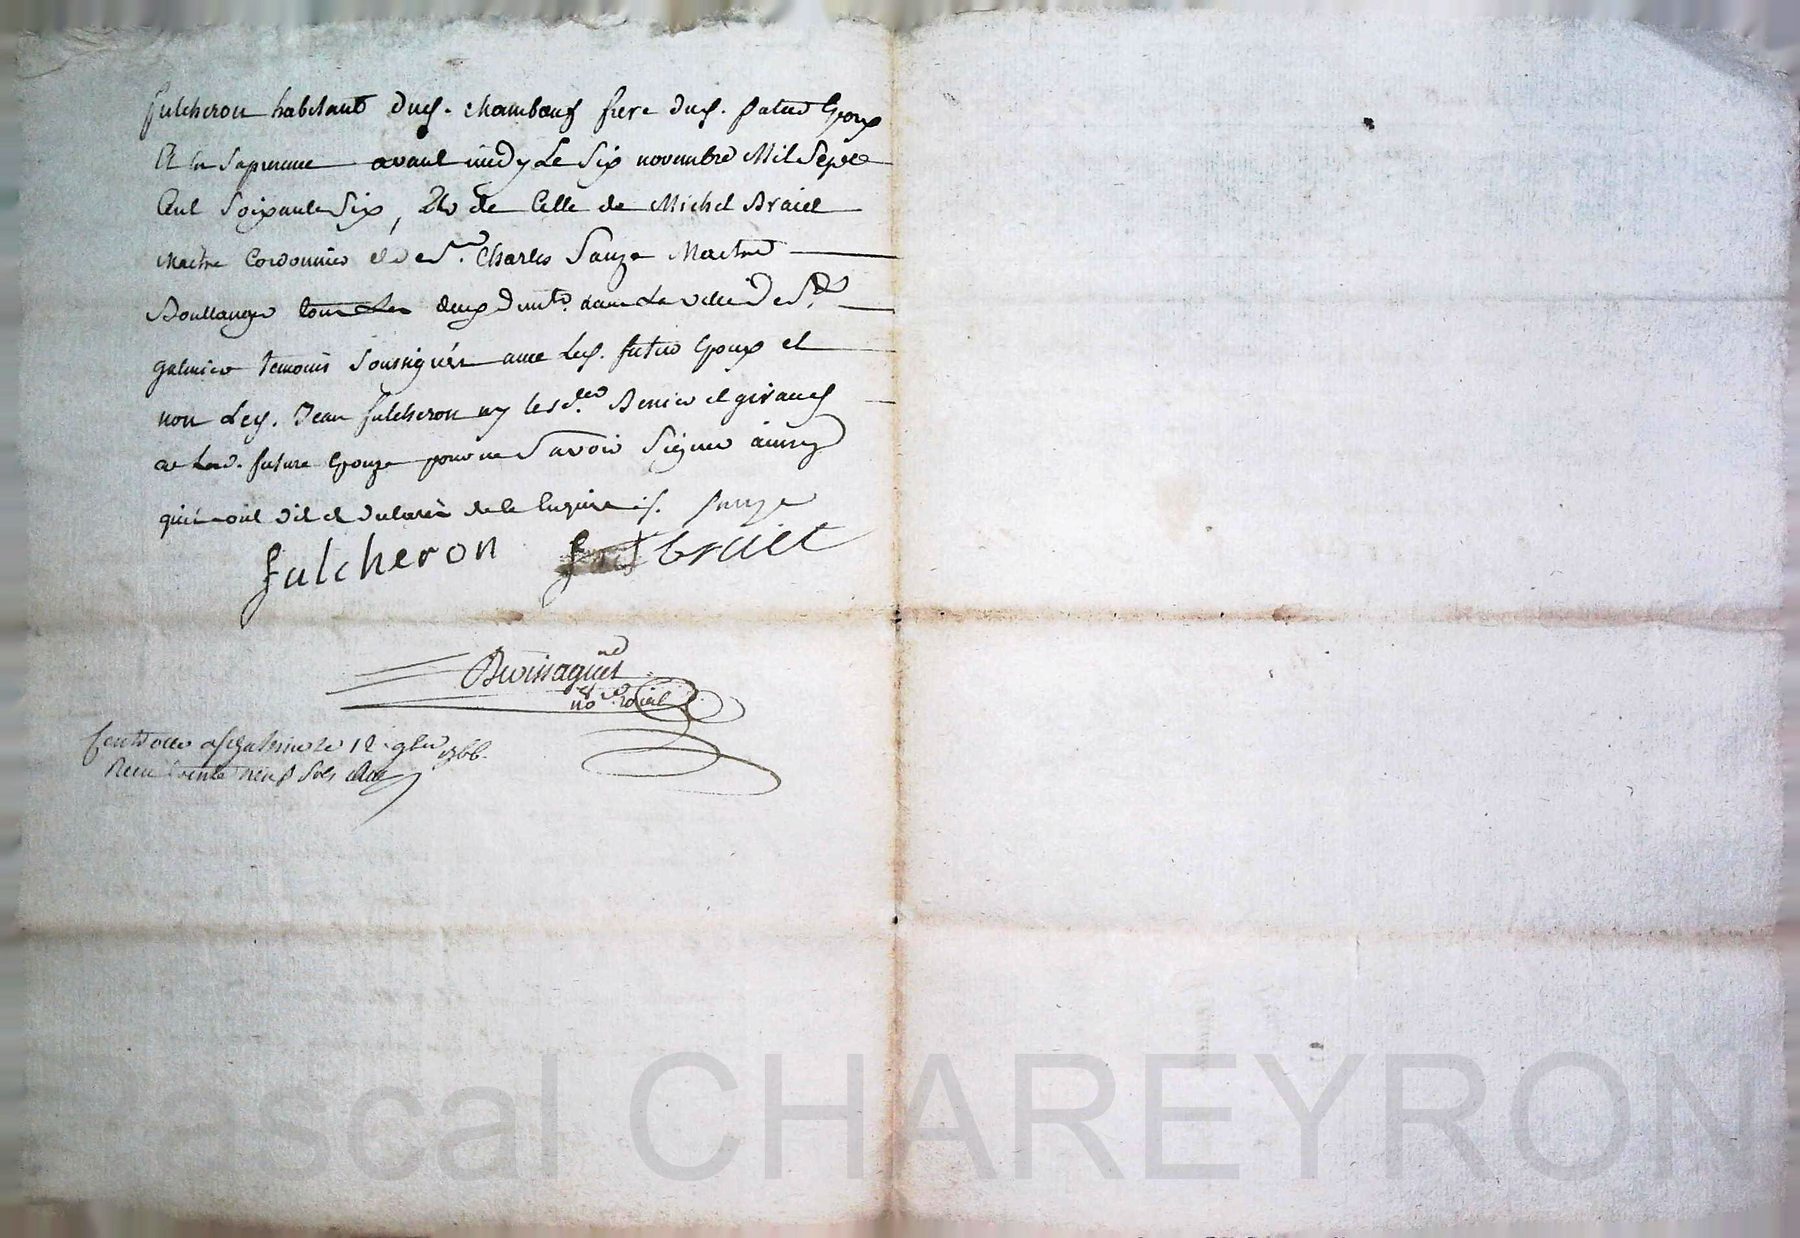 fulcheron habitant dud. chambœuf frere dud. futur Epoux
Et en sa presence avant midy Le Six novembre Mil Sept
Cent Soixante Six, Et de Celle de Michel Braiet
Maitre Cordonnier et de Sr. Charles Sauze Maitre
Boullanger tous Les deux demts. dans La ville de St.
galmier temoins Soussignés avec Led. futur Epoux et
non Led. Jean fulcheron ny lesdtes Benier et giraud
et Lad. future Epouze pour ne Savoir Signer ainsy
qu'ils ont dit et declaré de ce Enquis
Sauze
fulcheron braiet
no.re roial
Controllé a St galmier le 12 9bre 1766.
Recu trente neuf sols
Pascal CHAREYRON